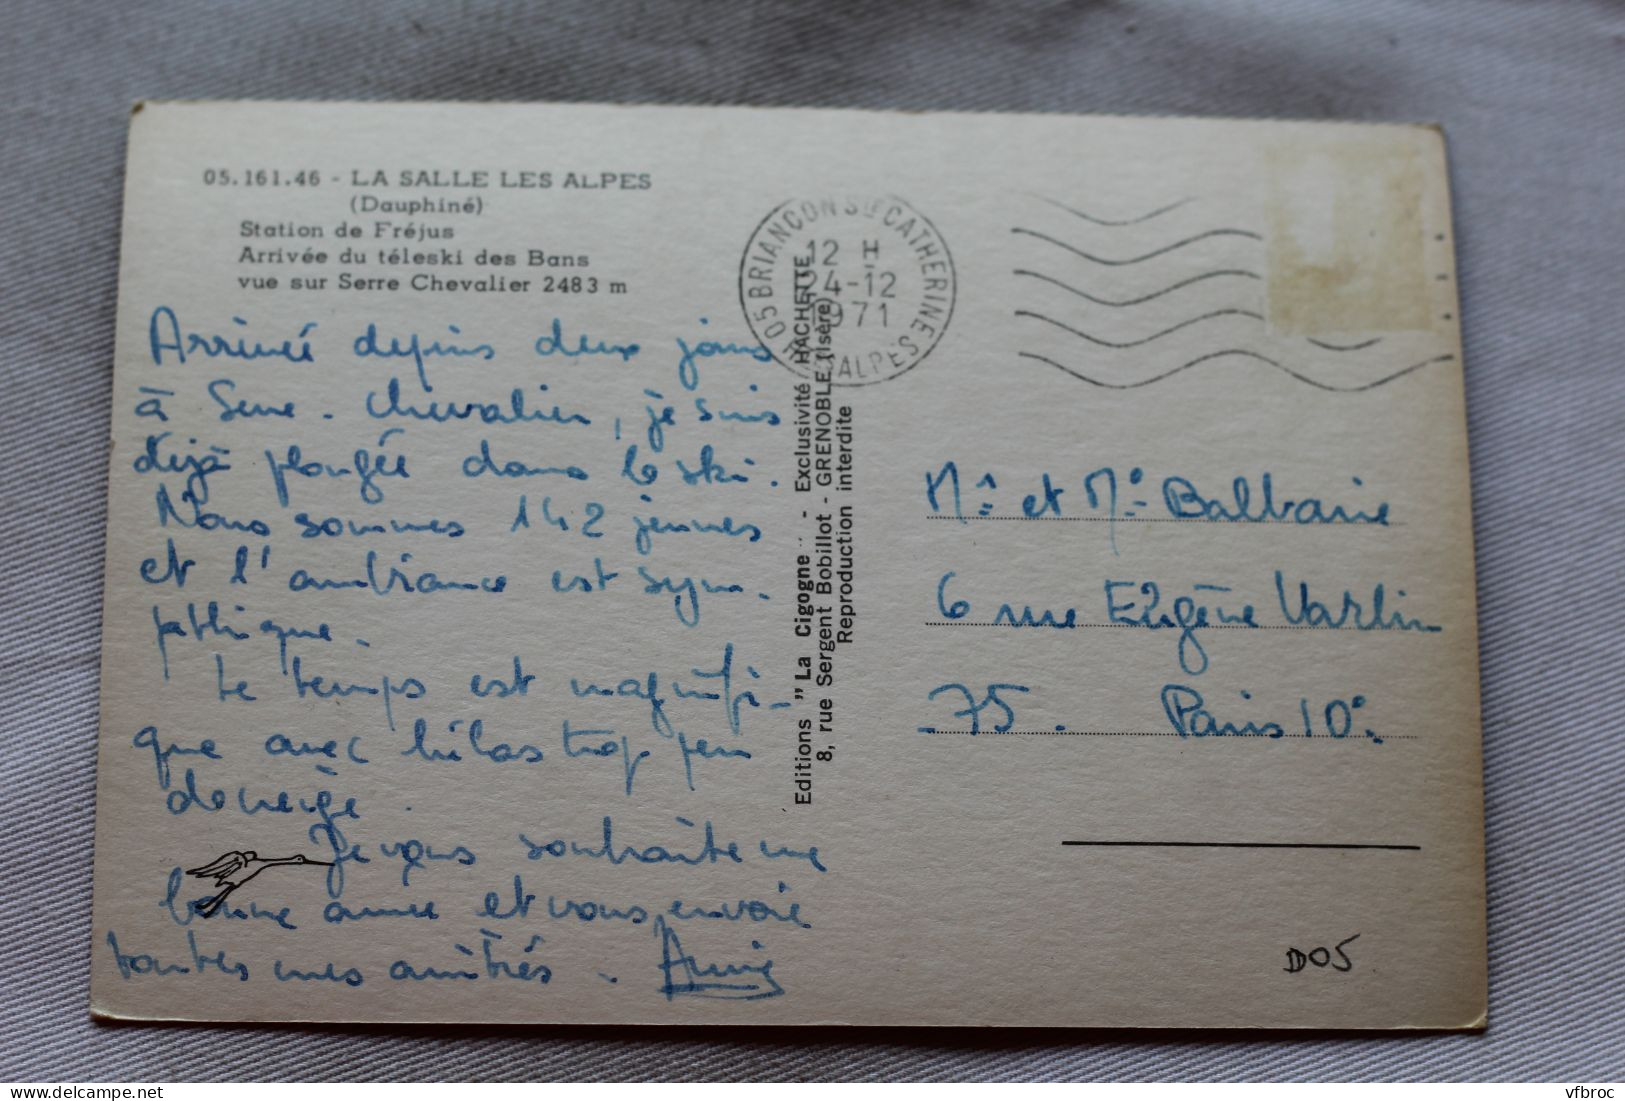 05.161.46 - LA SALLE LES ALPES
(Dauphiné)
Station de Fréjus
Arrivée du téleski des Bans
vue sur Serre Chevalier 2483 m
Arrivée depuis deux jours
à Serre-Chevalier, je suis
déjà plongée dans le ski.
Nous sommes 142 jeunes
et l'ambiance est sym-
pathique.
Le temps est magnifi-
que avec hélas trop peu
de neige.
Je vous souhaite une
bonne année et vous envoie
toutes mes amitiés. Annie
Editions "La Cigogne" - Exclusivité HACHETTE
8, rue Sergent Bobillot - GRENOBLE (Isère)
Reproduction interdite
05 BRIANCON Ste CATHERINE
12 H
24-12
1971
HTES ALPES
Mr et Me Balbarie
6 rue Eugène Varlin
75. Paris 10e.
D05
vfbroc